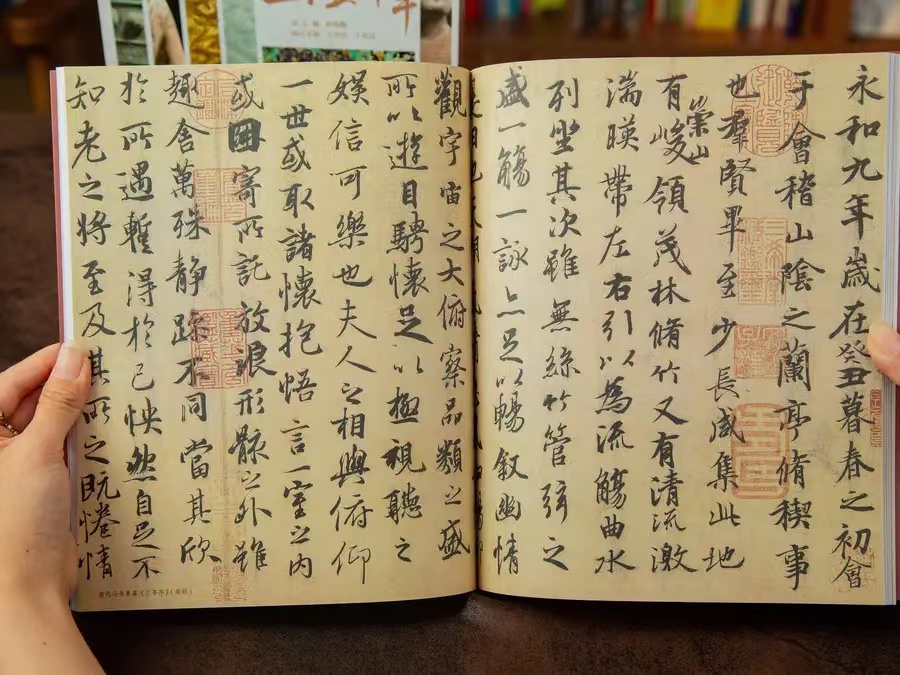 永和九年歲在癸丑暮春之初會
于會稽山陰之蘭亭脩禊事
也羣賢畢至少長咸集此地
有崇山峻領茂林脩竹又有清流激
湍暎帶左右引以為流觴曲水
列坐其次雖無絲竹管弦之
盛一觴一詠亦足以暢叙幽情
日也天朗
觀宇宙之大俯察品類之盛
所以遊目騁懷足以極視聽之
娛信可樂也夫人之相與俯仰
一世或取諸懷抱悟言一室之內
或因寄所託放浪形骸之外雖
趣舍萬殊静躁不同當其欣
於所遇暫得於己怏然自足不
知老之將至及其所之既惓情
唐代冯承素摹《兰亭序》(局部)